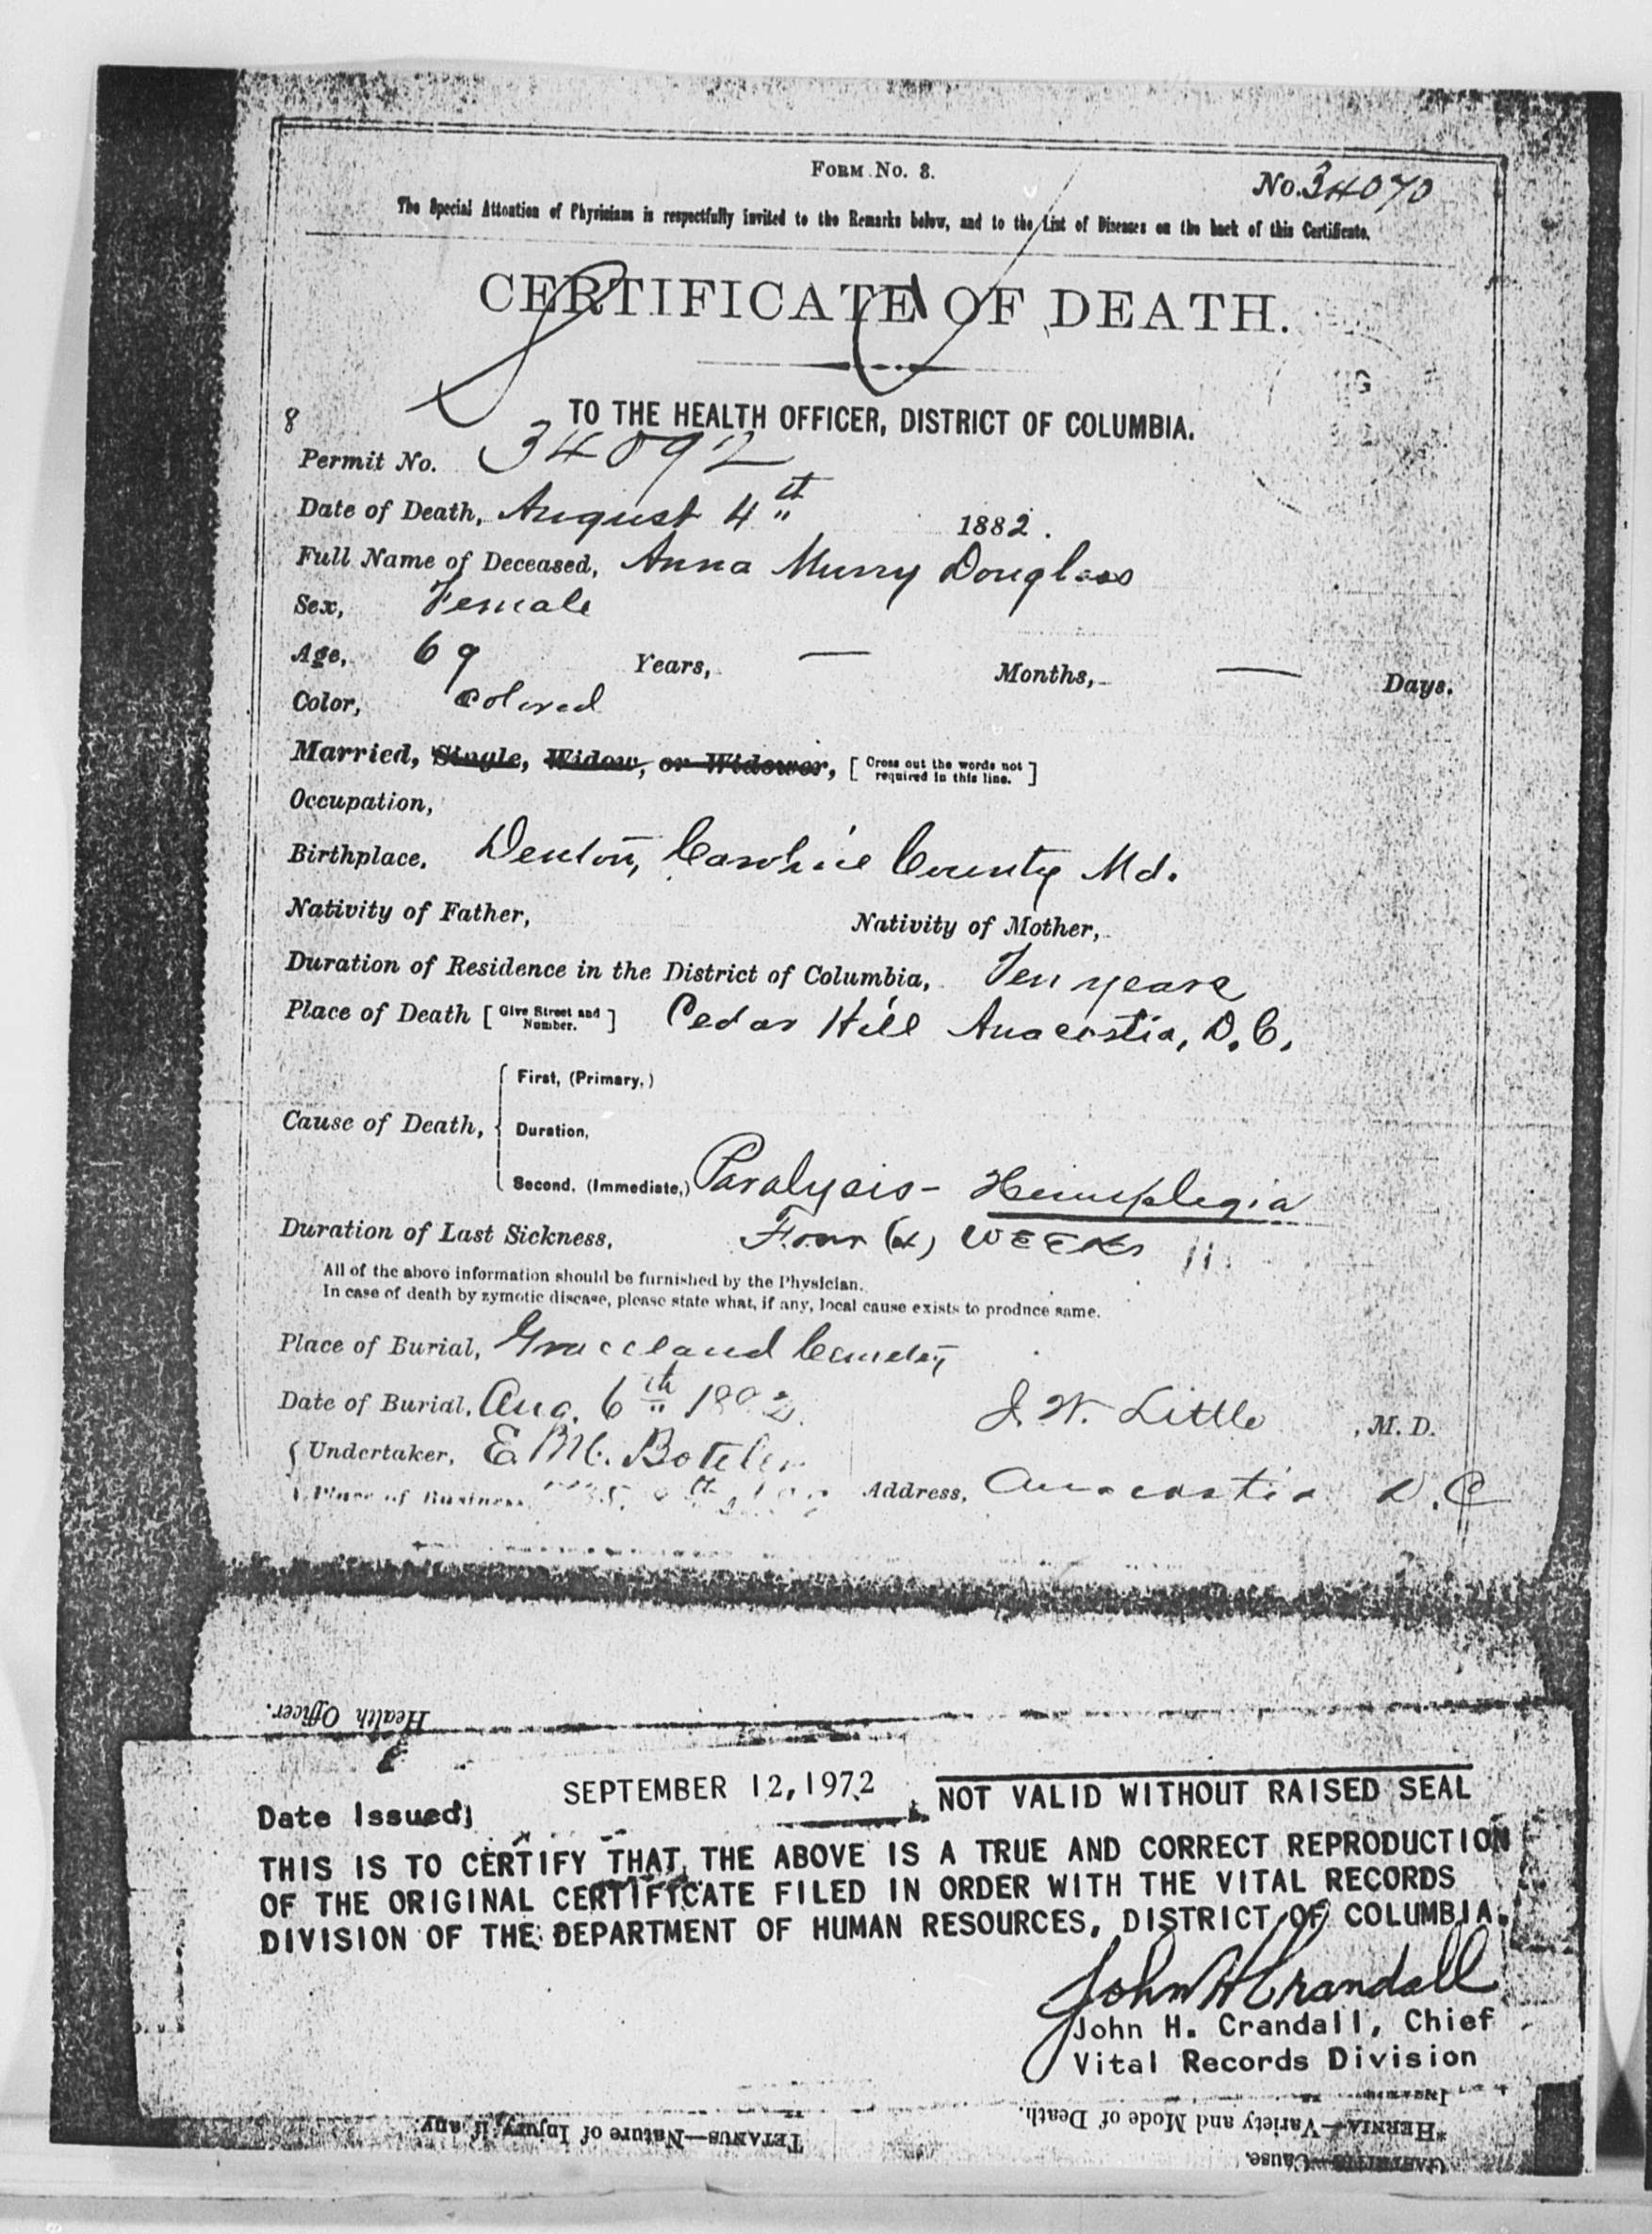 FORM No. 8.
No. 34070
The Special Attention of Physicians is respectfully invited to the Remarks below, and to the List of Diseases on the back of this Certificate.
CERTIFICATE OF DEATH.
TO THE HEALTH OFFICER, DISTRICT OF COLUMBIA.
8
Permit No. 34092
Date of Death, August 4th 1882.
Full Name of Deceased, Anna Murry Douglass
Sex, Female
Age, 69 Years, — Months, — Days.
Color, Colored
Married, Single, Widow, or Widower, [Cross out the words not required in this line.]
Occupation,
Birthplace, Denton, Caroline County Md.
Nativity of Father, Nativity of Mother,
Duration of Residence in the District of Columbia, Ten years
Place of Death [Give Street and Number.] Cedar Hill Anacostia, D.C.
Cause of Death, First, (Primary,)
Duration,
Second, (Immediate,) Paralysis - Hemiplegia
Duration of Last Sickness, Four (4) WEEKs
All of the above information should be furnished by the Physician.
In case of death by zymotic disease, please state what, if any, local cause exists to produce same.
Place of Burial, Graceland Cemetey
Date of Burial, Aug. 6th 1882. J. W. Little, M. D.
Undertaker, E. M. Boteler
Place of Business, Address, Anacostia D.C
Health Officer.
Date Issued; SEPTEMBER 12, 1972 NOT VALID WITHOUT RAISED SEAL
THIS IS TO CERTIFY THAT THE ABOVE IS A TRUE AND CORRECT REPRODUCTION
OF THE ORIGINAL CERTIFICATE FILED IN ORDER WITH THE VITAL RECORDS
DIVISION OF THE DEPARTMENT OF HUMAN RESOURCES, DISTRICT OF COLUMBIA.
John H Crandall
John H. Crandall, Chief
Vital Records Division
*HERNIA—Variety and Mode of Death.
TETANUS—Nature of Injury, if any.
Cause.